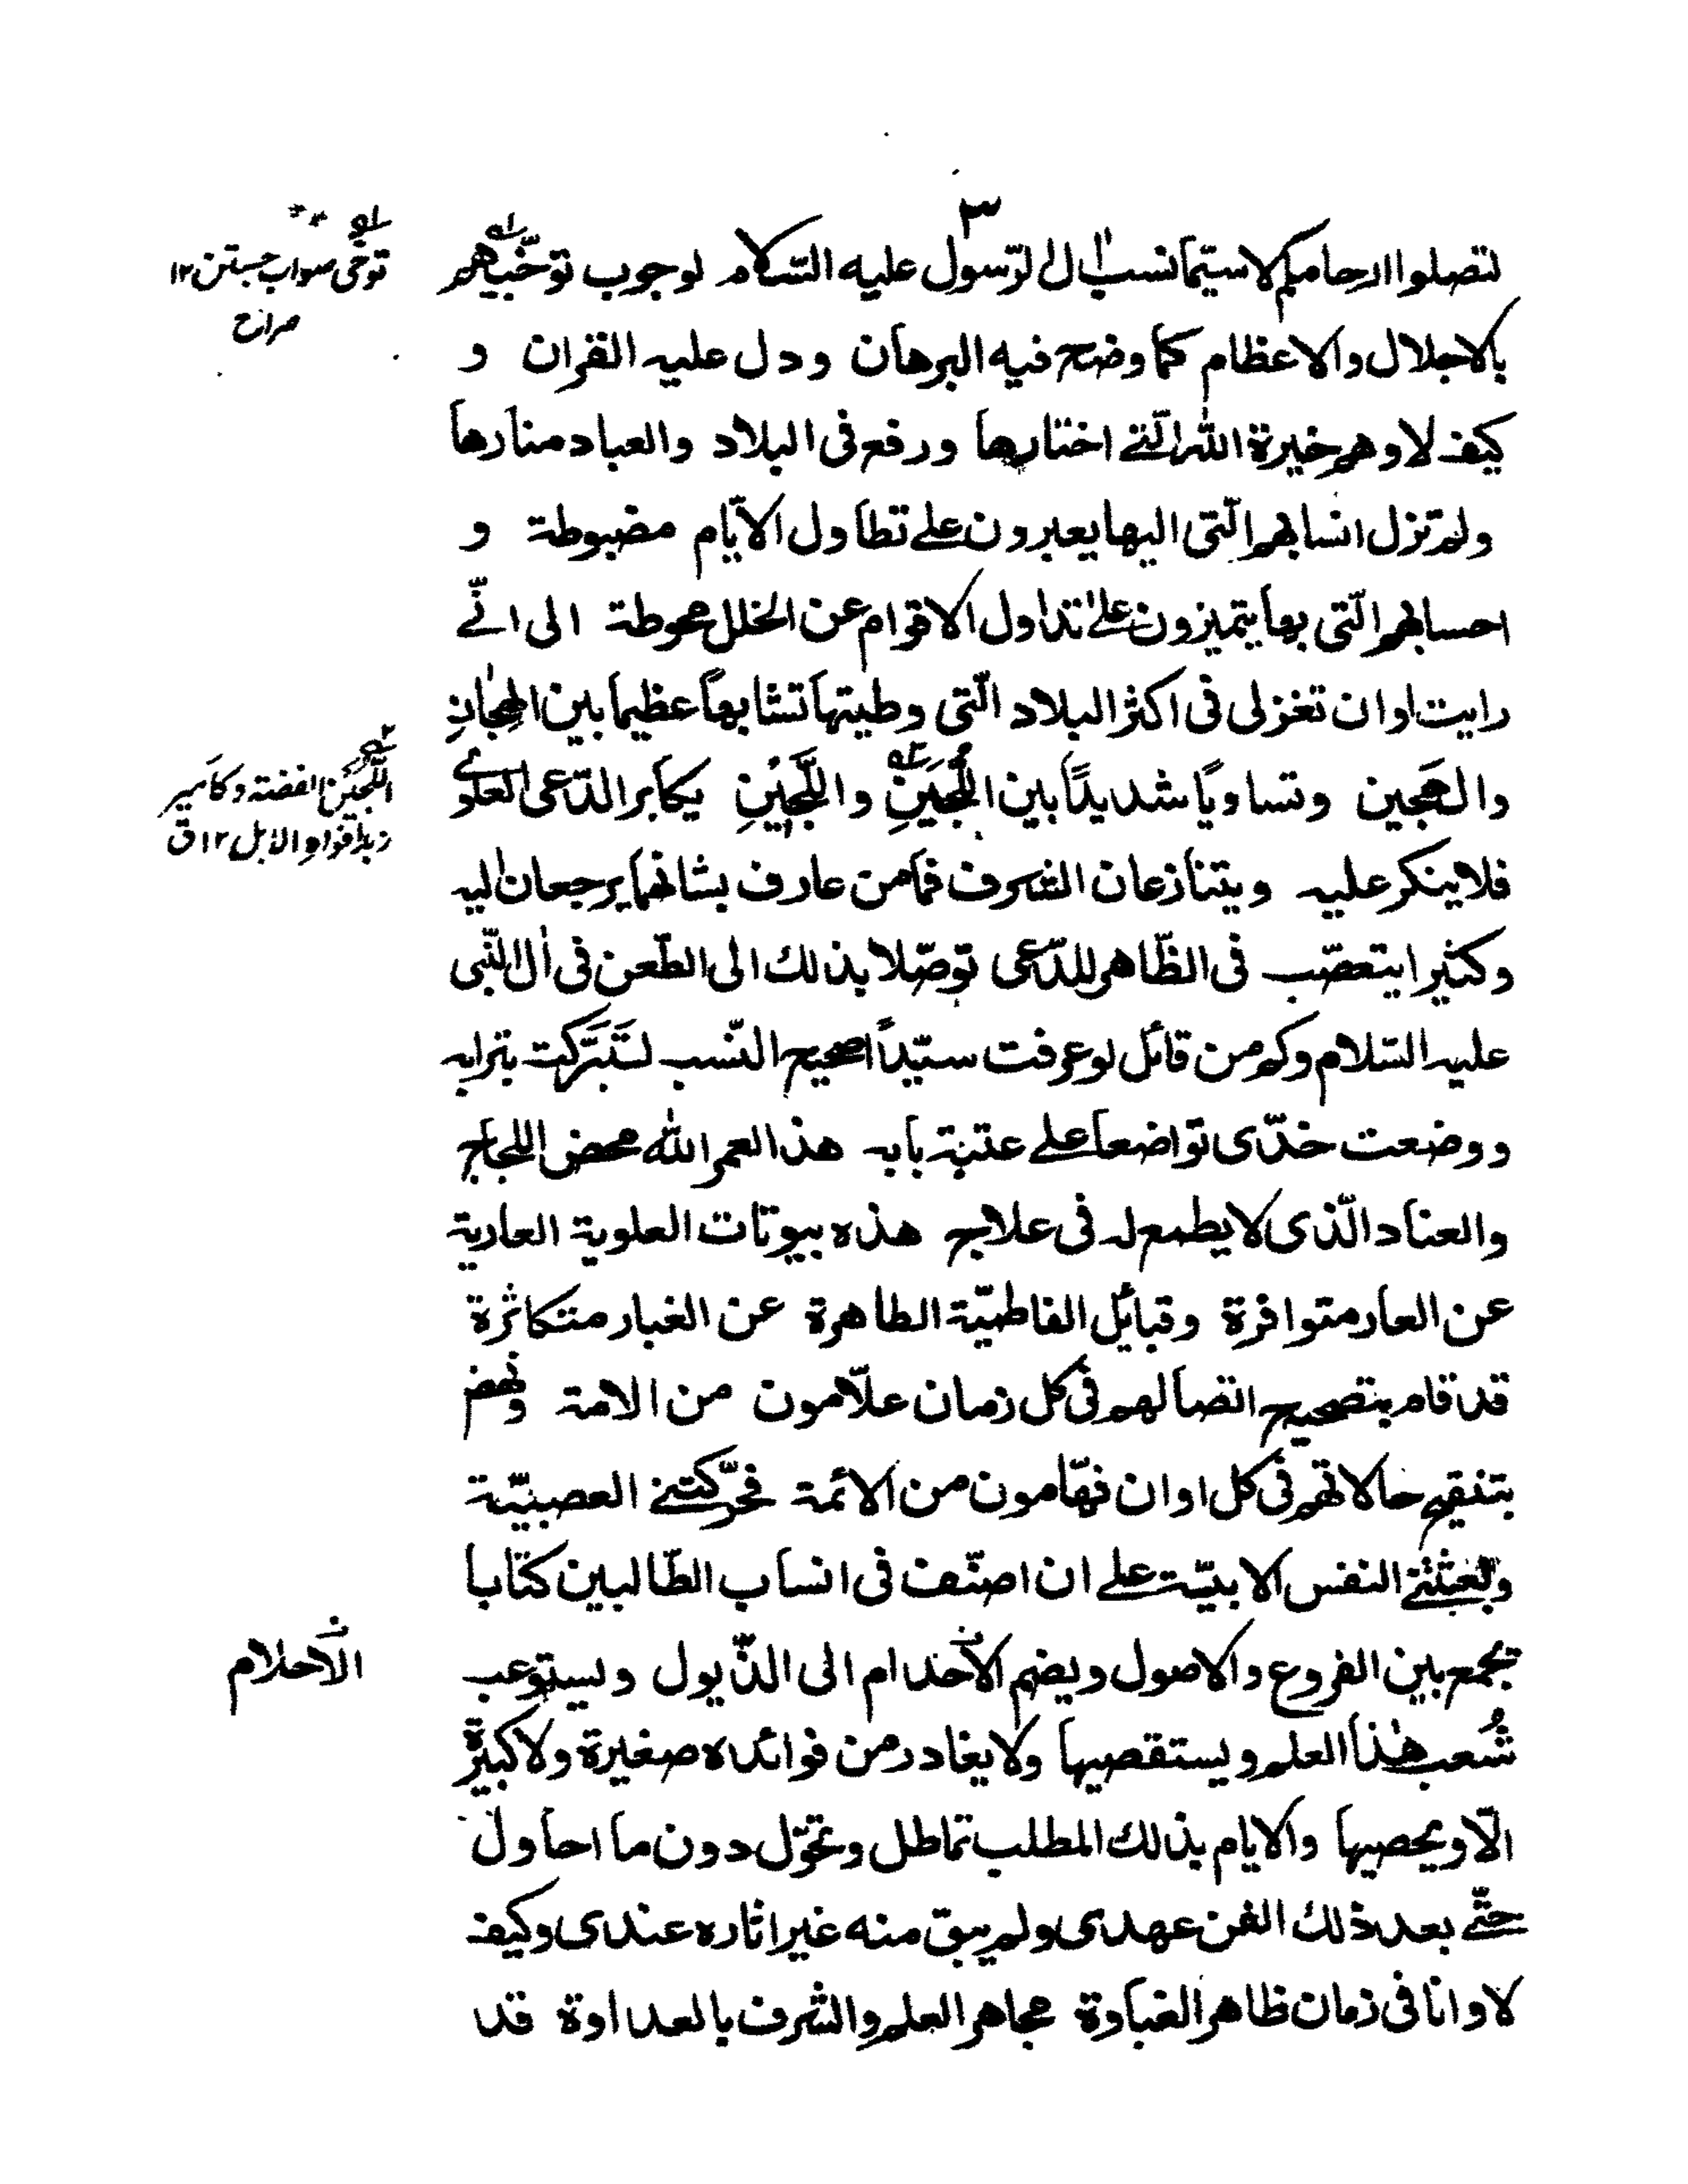 ٣
لتصلوا ارحامكم لا سيّما نسب اٰل الرّسول عليه السّلام لوجوب توخّيهم
بالاجلال والاعظام كما وضح فيه البرهان ودل عليه القران و
كيف لا وهم خيرة الله الّتے اختارها ورفع فى البلاد والعباد منارها
ولم تزل انسابهم الّتى اليها يعبرون علے تطاول الايّام مضبوطة و
احسابهم الّتى بها يتميزون علےٰ تداول الاقوام عن الخلل محوطة الى انّے
رايت اوان تغزلى فى اكثر البلاد الّتى وطيتها تشابهاً عظيما بين الهِجٰانِ
والهَجين وتساويًا شديدًا بين اللُّجَينِ واللَّجِيْنِ يكابر الدّعى العلوے
فلا ينكر عليه ويتنازعان الشرف فما من عارف بشانهما يرجعان اليه
وكثيرا يتعصّب فى الظّاهر للدّعى توصّلا بذلك الى الطّعن فى اٰل النّبى
عليه السّلام وكم من قائل لو عرفت سيّداً صحيح النّسب لتَبَرَّكت بترابه
ووضعت خدّى تواضعا علے عتبة بابه هذا لعمر الله محض اللجاج
والعناد الّذى لا يطمع له فى علاج هذه بيوتات العلوية العارية
عن العار متوافرة وقبائل الفاطميّة الطاهرة عن الغبار متكاثرة
قد قام بتصحيح اتصالهم فى كل زمان علّامون من الامة ونهض
بتنقيح حالاتهم فى كل اوان فهّامون من الائمة فحرّكتنے العصبيّة
وبعثتنے النفس الابيّة علے ان اصنّف فى انساب الطّالبين كتابا
يجمع بين الفروع والاصول ويضم الاخدام الى الذّيول ويستوعب
شُعب هٰذا العلم ويستقصيها ولا يغادر من فوائده صغيرة ولا كبيرة
الّا ويحصيها والايام بذلك المطلب تماطل وتحوّل دون ما احاول
حتّے بعد ذلك الفن عهدى ولم يبق منه غير اثاره عندى وكيف
لا وانا فى زمان ظاهر الغباوة مجاهر العلم والشرف بالعداوة قد
توخّى صواب جستن ١٢
صراح
اللُّجَيْن الفضة وكامير
زبد افواه الابل ١٢ ق
الاحلام